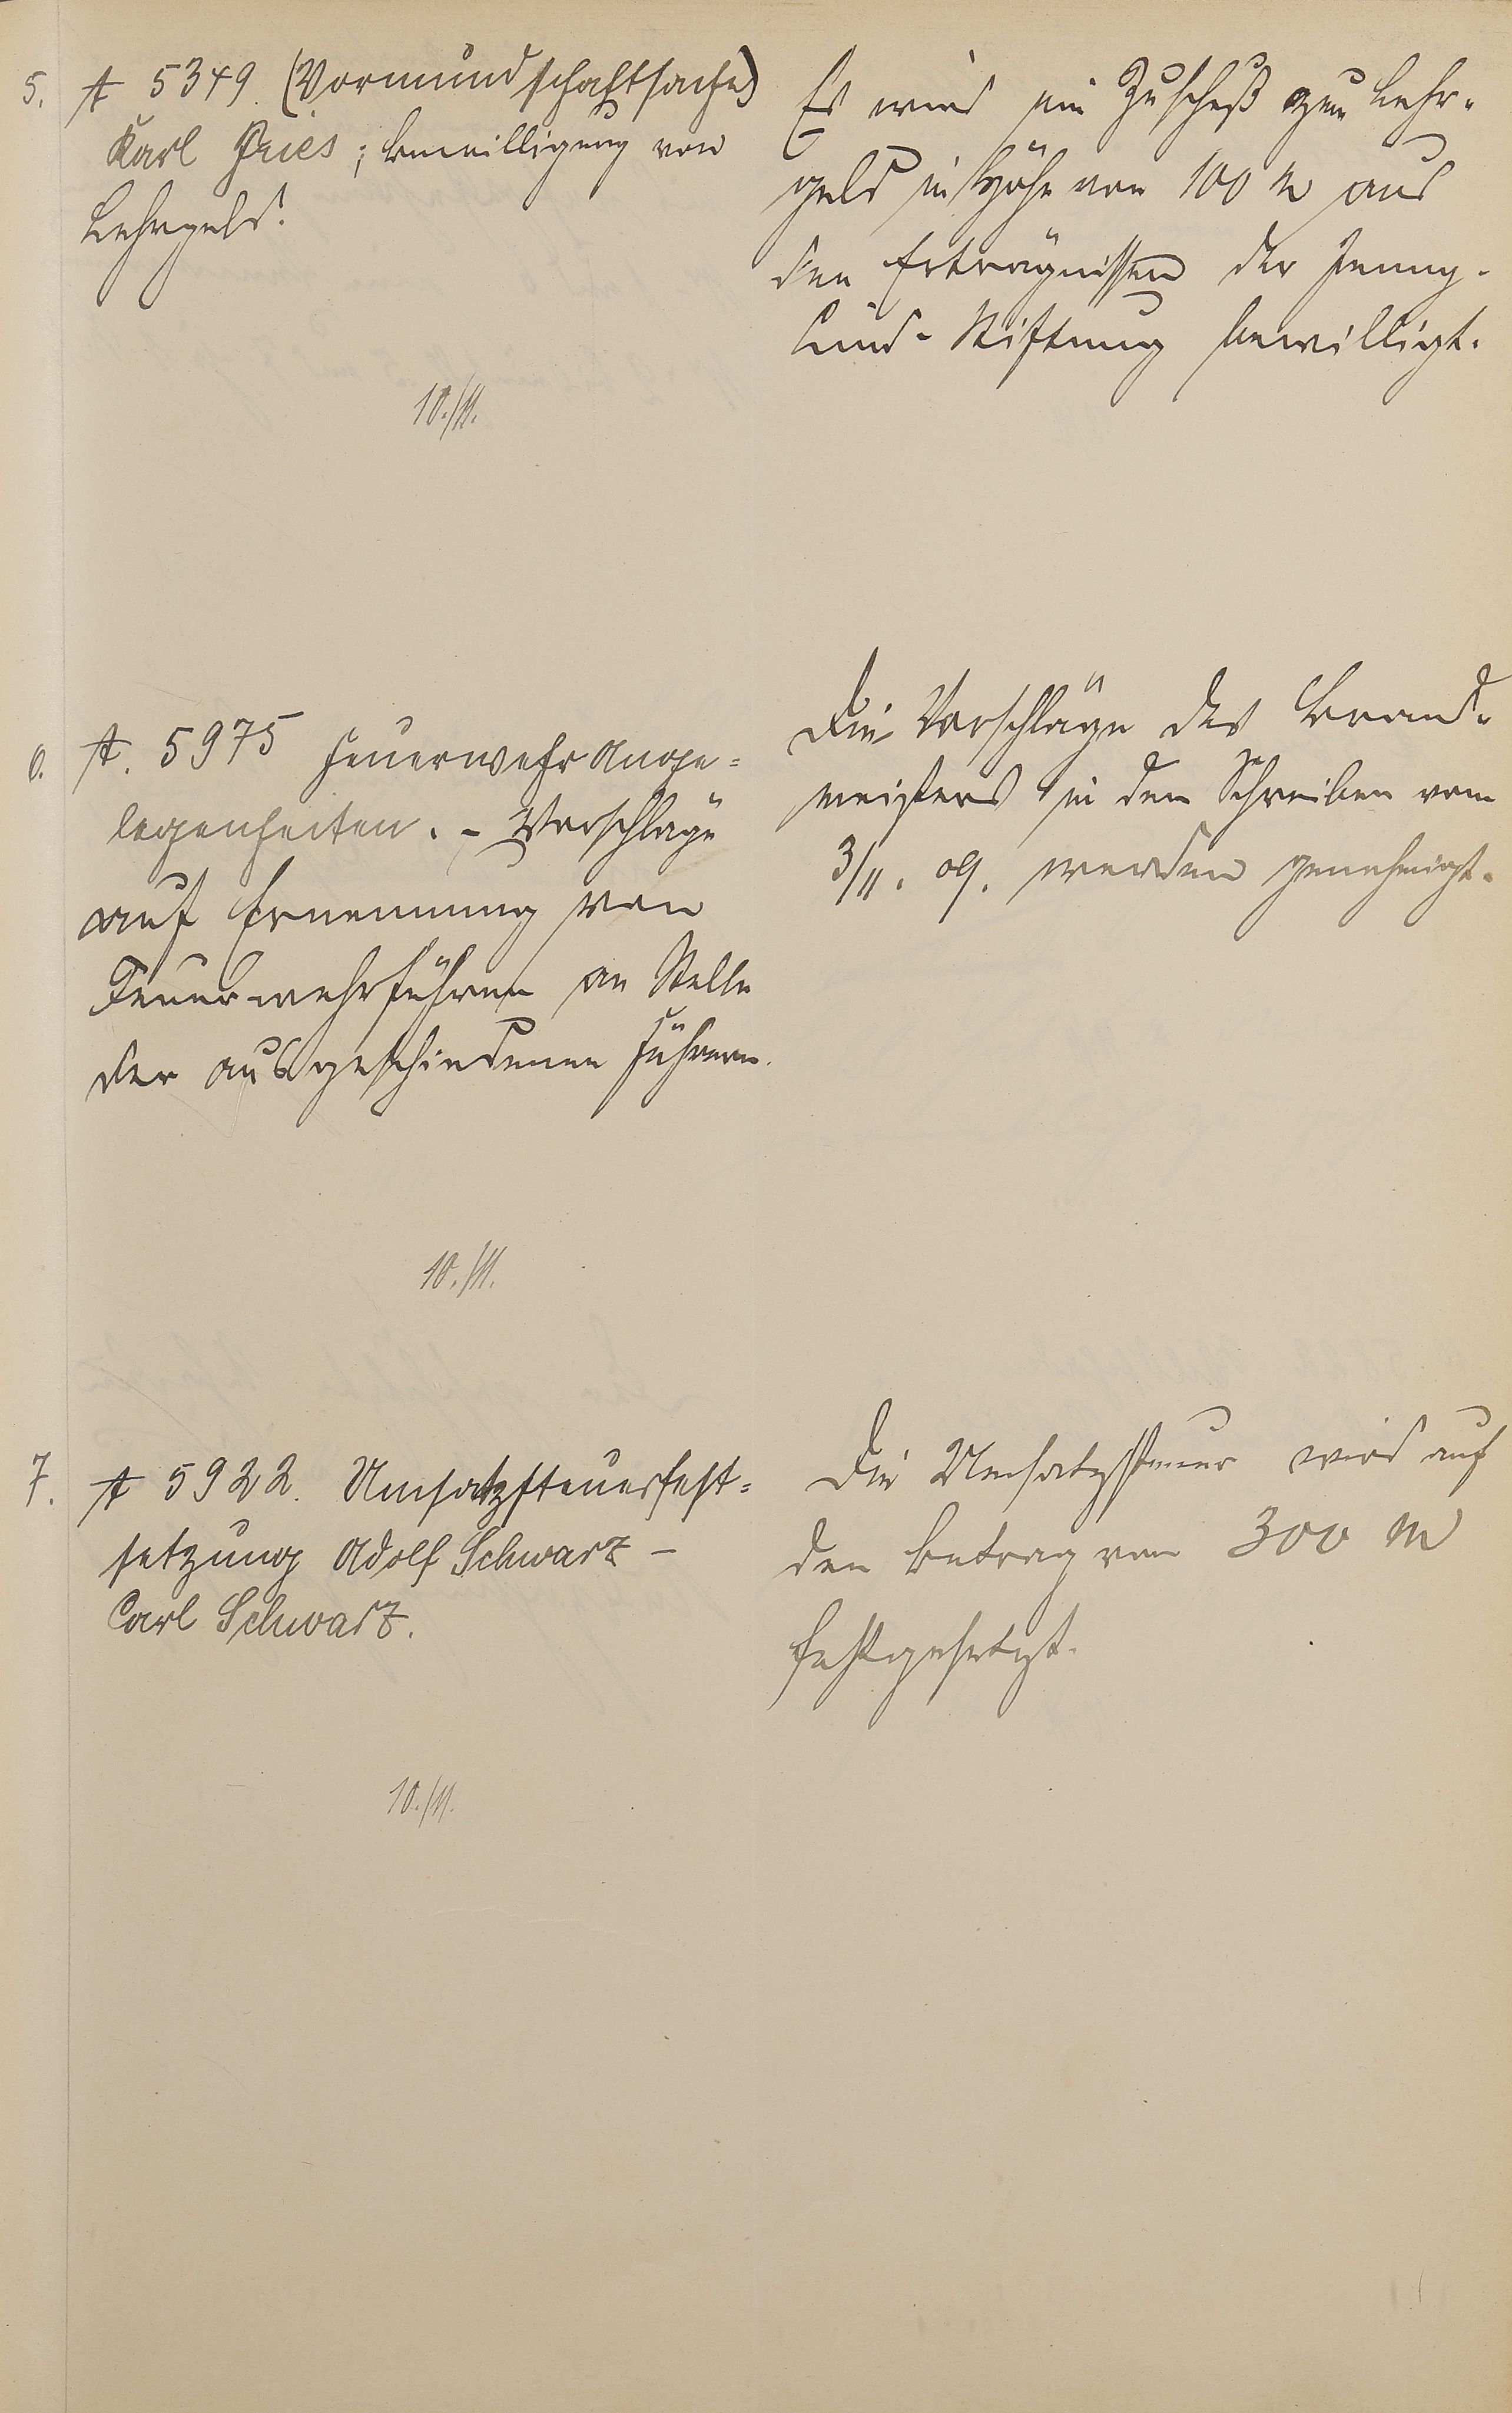 5. A 5349. (Vormundschaftsache)
Karl Pries; Bewilligung von
Lehrgeld.
Es wird ein Zuschuß zum Lehr-
geld in Höhe von 100 M aus
den Erträgnissen der Jenny-
Lind-Stiftung bewilligt.
10./11.
6. A. 5975 Feuerwehr Ange=
legenheiten. - Vorschläge
auf Ernennung von
Feuerwehrführern an Stelle
der ausgeschiedenen Führern.
Die Vorschläge des Brand-
meisters in dem Schreiben vom
3/11. 09. werden genehmigt.
10./11.
7. A 5922. Umsatzsteuerfest=
setzung Adolf Schwarz -
Carl Schwarz.
Die Umsatzsteuer wird auf
den Betrag von 300 M
festgesetzt.
10./11.